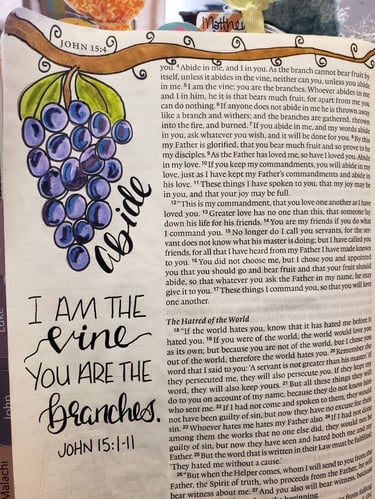 Matthew
JOHN 15:4
you. 4Abide in me, and I in you. As the branch cannot bear fruit by
itself, unless it abides in the vine, neither can you, unless you abide
in me. 5I am the vine; you are the branches. Whoever abides in me
and I in him, he it is that bears much fruit, for apart from me you
can do nothing. 6If anyone does not abide in me he is thrown away
like a branch and withers; and the branches are gathered, thrown
into the fire, and burned. 7If you abide in me, and my words abide
in you, ask whatever you wish, and it will be done for you. 8By this
my Father is glorified, that you bear much fruit and so prove to be
my disciples. 9As the Father has loved me, so have I loved you. Abide
in my love. 10If you keep my commandments, you will abide in my
love, just as I have kept my Father's commandments and abide in
his love. 11These things I have spoken to you, that my joy may be
in you, and that your joy may be full.
12"This is my commandment, that you love one another as I have
loved you. 13Greater love has no one than this, that someone lay
down his life for his friends. 14You are my friends if you do what
I command you. 15No longer do I call you servants, for the ser-
vant does not know what his master is doing; but I have called you
friends, for all that I have heard from my Father I have made known
to you. 16You did not choose me, but I chose you and appointed
you that you should go and bear fruit and that your fruit should
abide, so that whatever you ask the Father in my name, he may
give it to you. 17These things I command you, so that you will love
one another.
The Hatred of the World
18"If the world hates you, know that it has hated me before it
hated you. 19If you were of the world, the world would love you
as its own; but because you are not of the world, but I chose you
out of the world, therefore the world hates you. 20Remember the
word that I said to you: 'A servant is not greater than his master.' If
they persecuted me, they will also persecute you. If they kept my
word, they will also keep yours. 21But all these things they will
do to you on account of my name, because they do not know him
who sent me. 22If I had not come and spoken to them, they would
not have been guilty of sin, but now they have no excuse for their
sin. 23Whoever hates me hates my Father also. 24If I had not done
among them the works that no one else did, they would not be
guilty of sin, but now they have seen and hated both me and my
Father. 25But the word that is written in their Law must be fulfilled:
'They hated me without a cause.'
26"But when the Helper comes, whom I will send to you from the
Father, the Spirit of truth, who proceeds from the Father, he will
bear witness about me. 27And you also will bear witness, because
abide
I AM THE
vine
YOU ARE THE
branches.
JOHN 15:1-11
Luke
John
Malachi